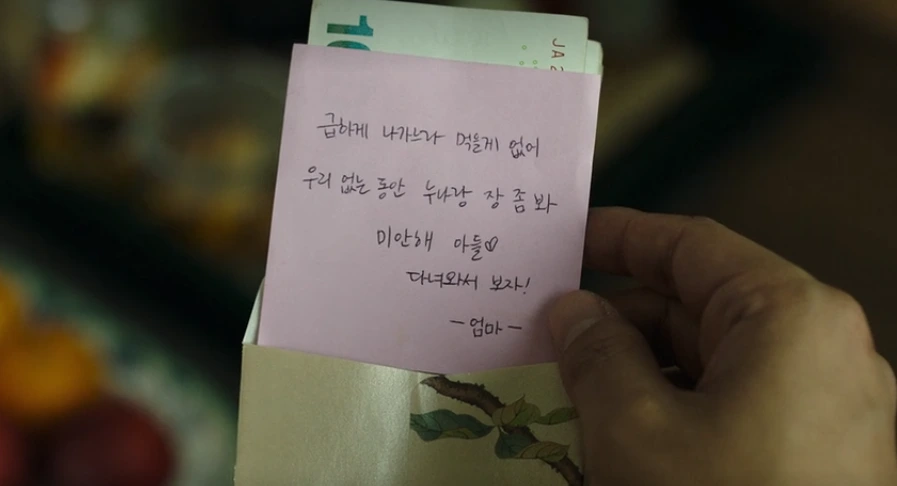 10
JA 2
급하게 나가느라 먹을게 없어
우리 없는 동안 누나랑 장 좀 봐
미안해 아들♡
다녀와서 보자!
-엄마-